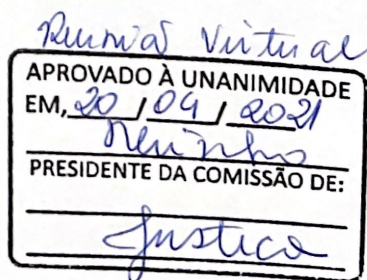 Reunião Virtual
APROVADO À UNANIMIDADE
EM, 20 / 04 / 2021
PRESIDENTE DA COMISSÃO DE:
Justiça